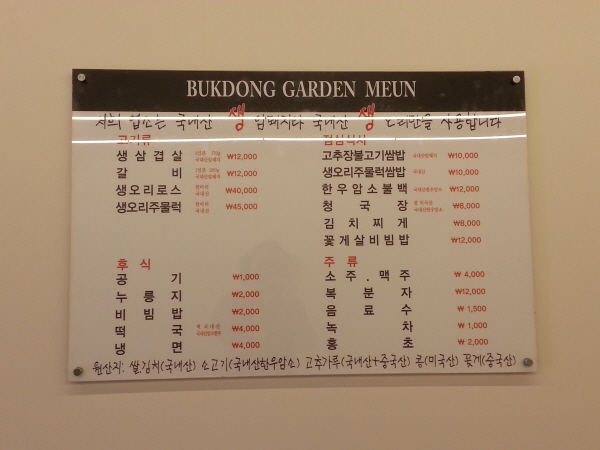 BUKDONG GARDEN MEUN
저희 업소는 국내산 생 암퇘지와 국내산 생 오리만을 사용합니다
고기류
생삼겹살 1인분 국내산암돼지 ₩12,000
갈비 1인분 국내산암돼지 ₩12,000
생오리로스 한마리 국내산 ₩40,000
생오리주물럭 한마리 국내산 ₩45,000
점심식사
고추장불고기쌈밥 국내산암돼지 ₩10,000
생오리주물럭쌈밥 국내산 ₩10,000
한우암소불백 국내산한우암소 ₩12,000
청국장 국내산한우암소 ₩8,000
김치찌게 ₩8,000
꽃게살비빔밥 ₩12,000
후식
공기 ₩1,000
누릉지 ₩2,000
비빔밥 ₩2,000
떡국 ₩4,000
냉면 ₩4,000
주류
소주.맥주 ₩ 4,000
복분자 ₩12,000
음료수 ₩ 1,500
녹차 ₩ 1,000
홍초 ₩ 2,000
원산지: 쌀,김치(국내산) 소고기(국내산한우암소) 고추가루(국내산+중국산) 콩(미국산) 꽃게(중국산)